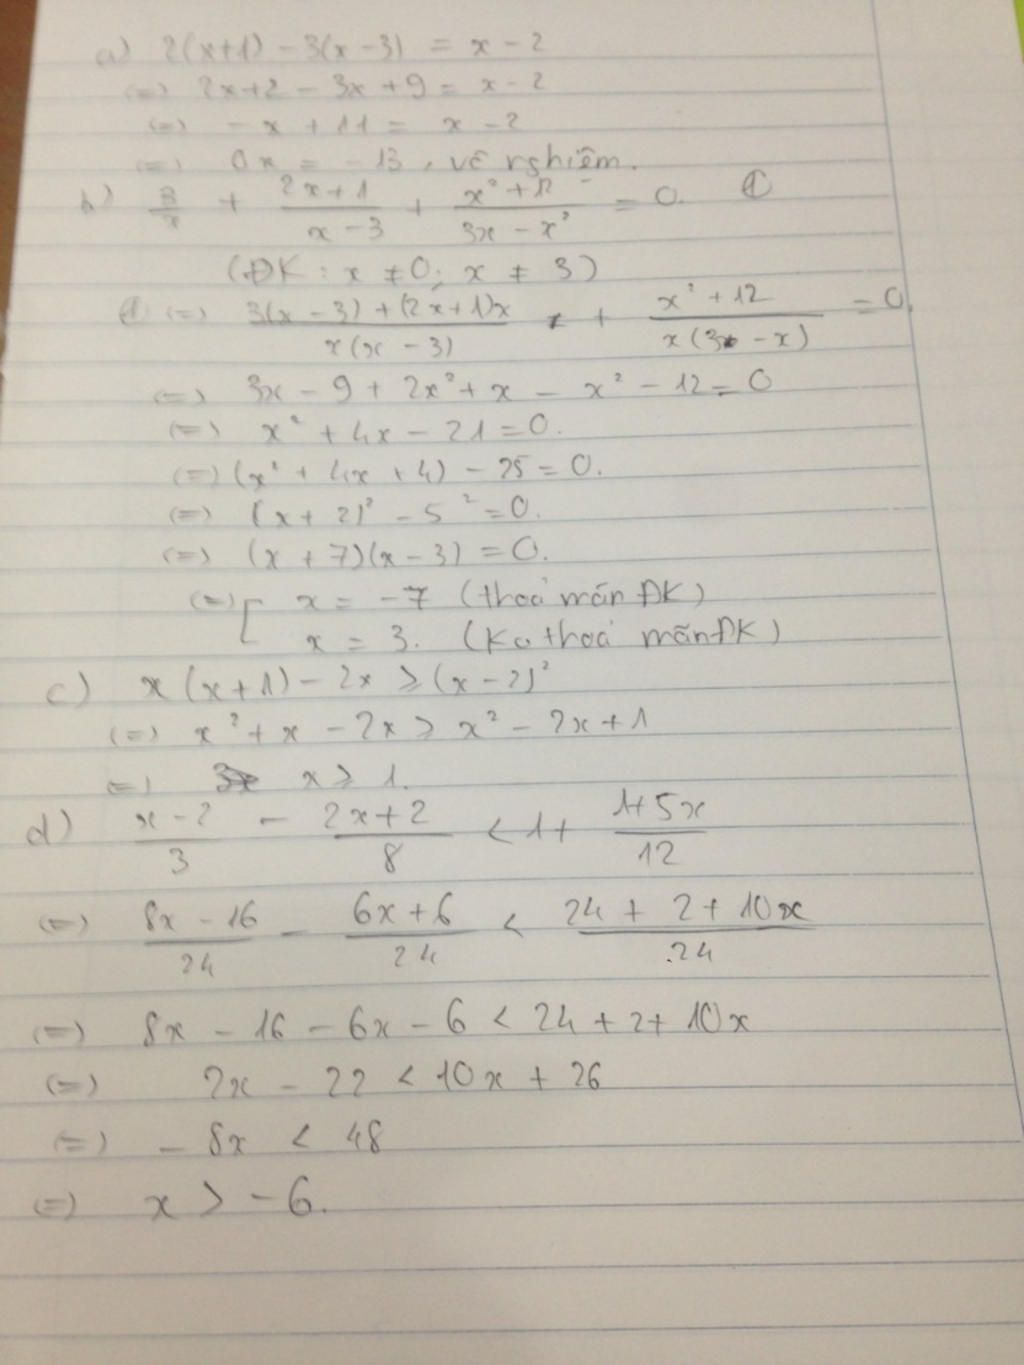 a) 2(x+1) - 3(x-3) = x - 2
(=) 2x+2 - 3x + 9 = x - 2
(=) - x + 11 = x - 2
(=) 0x = - 13, vô nghiệm.
b) 3/x + (2x+1)/(x-3) + (x²+12)/(3x - x²) = 0. (1)
(ĐK : x ≠ 0; x ≠ 3)
(1) (=) (3(x-3) + (2x+1)x)/(x(x-3)) + (x²+12)/(x(3-x)) = 0.
(=) 3x - 9 + 2x² + x - x² - 12 = 0
(=) x² + 4x - 21 = 0.
(=) (x² + 4x + 4) - 25 = 0.
(=) (x + 2)² - 5² = 0.
(=) (x + 7)(x - 3) = 0.
(=) [ x = -7 (thoả mãn ĐK)
x = 3. (Ko thoả mãn ĐK)
c) x(x+1) - 2x ≥ (x-2)²
(=) x² + x - 2x ≥ x² - 2x + 1
(=) x ≥ 1.
d) (x-2)/3 - (2x+2)/8 < 1 + (1+5x)/12
(=) (8x - 16)/24 - (6x+6)/24 < (24 + 2 + 10x)/24
(=) 8x - 16 - 6x - 6 < 24 + 2 + 10x
(=) 2x - 22 < 10x + 26
(=) - 8x < 48
(=) x > -6.